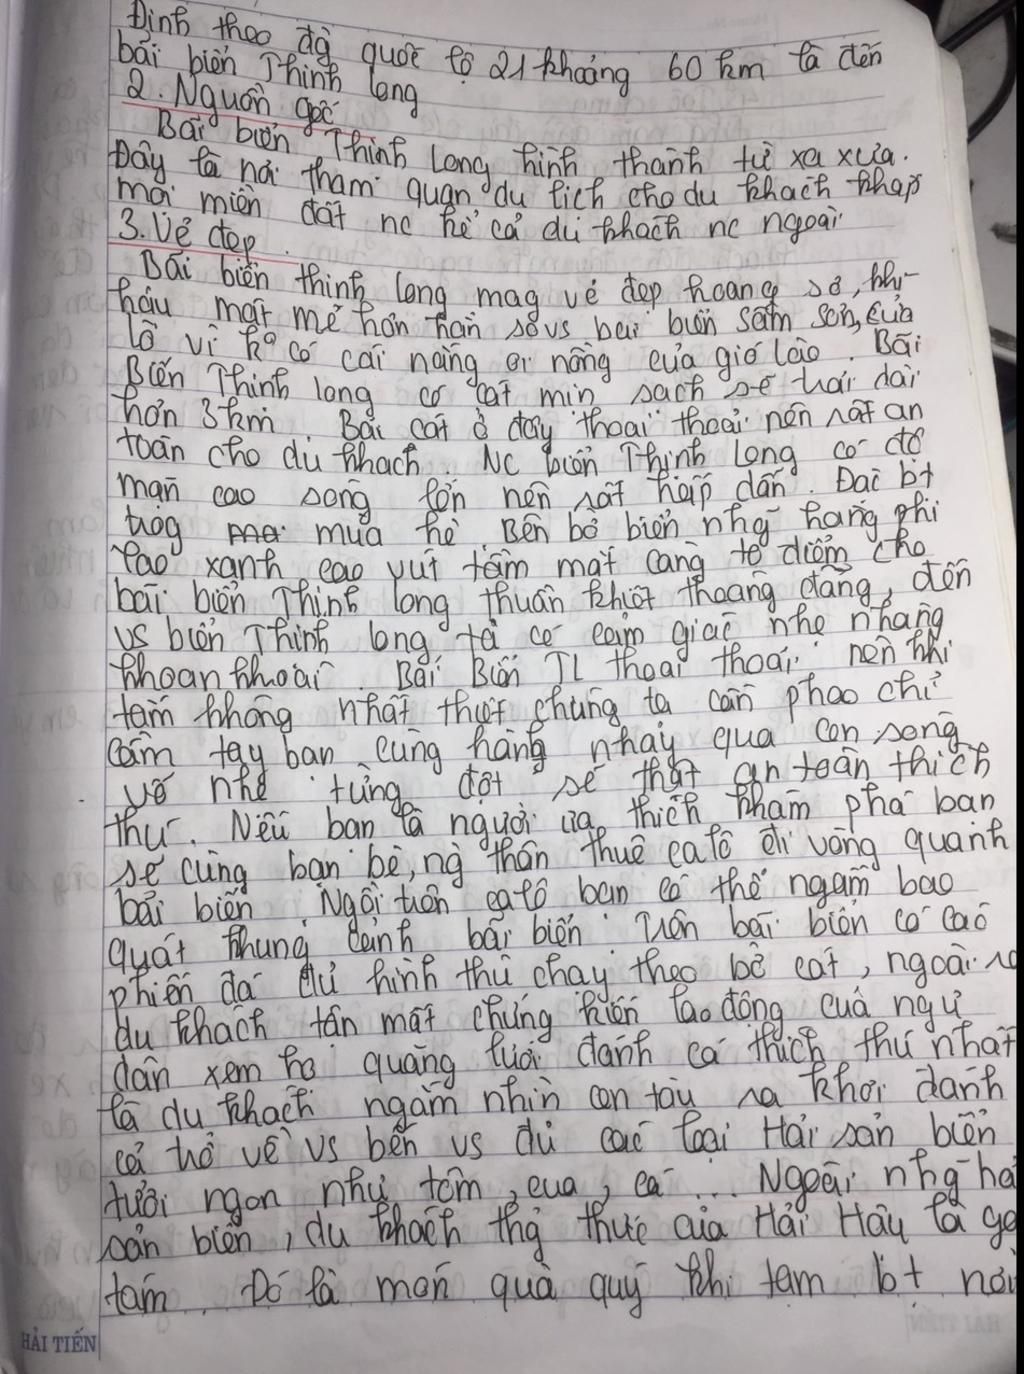 Định theo đg quốc lộ 21 khoảng 60 km là đến
bãi biển Thịnh Long
2. Nguồn gốc
Bãi biển Thịnh Long hình thành từ xa xưa.
Đây là nơi tham quan du lịch cho du khách khắp
mọi miền đất nc kể cả du khách nc ngoài
3. Vẻ đẹp.
Bãi biển thịnh long mag vẻ đẹp hoang sơ, khí
hậu mát mẻ hơn hẳn so vs bãi biển Sầm Sơn, Cửa
lò vì ko có cái nắng oi nồng của gió lào. Bãi
Biển Thịnh long có cát mịn sạch sẽ trải dài
hơn 3km. Bãi cát ở đây thoai thoải nên rất an
toàn cho du khách. NC biển Thịnh Long có độ
mặn cao sóng lớn nên rất hấp dẫn. Đặc bt
trog mùa hè. Bên bờ biển nhg hàng phi
lao xanh cao vút tầm mắt càng tô điểm cho
bãi biển Thịnh long thuần khiết thoáng đãng, đến
vs biển Thịnh long ta có cảm giác nhẹ nhàng
khoan khoái. Bãi Biển TL thoai thoải nên khi
tắm không nhất thiết chúng ta cần phao chỉ
cầm tay bạn cùng hàng nhảy qua con sóng
vỗ nhẹ từng đợt sẽ thật an toàn thích
thú. Nếu bạn là người ưa thích khám phá bạn
sẽ cùng bạn bè, ng thân thuê ca lô đi vòng quanh
bãi biển. Ngồi trên ca lô bạn có thể ngắm bao
quát khung cảnh bãi biển. Trên bãi biển có các
phiến đá đủ hình thù chạy theo bờ cát, ngoài ra
du khách tận mắt chứng kiến lao động của ngư
dân xem họ quăng lưới đánh cá thích thú nhất
là du khách ngắm nhìn con tàu ra khơi đánh
cá trở về vs bến vs đủ các loại Hải sản biển
tươi ngon như tôm, cua, cá ... Ngoài nhg hải
sản biển, du khách thg thức của Hải Hậu là gạo
tám. Đó là món quà quý khi tạm bt nơi
HẢI TIẾN